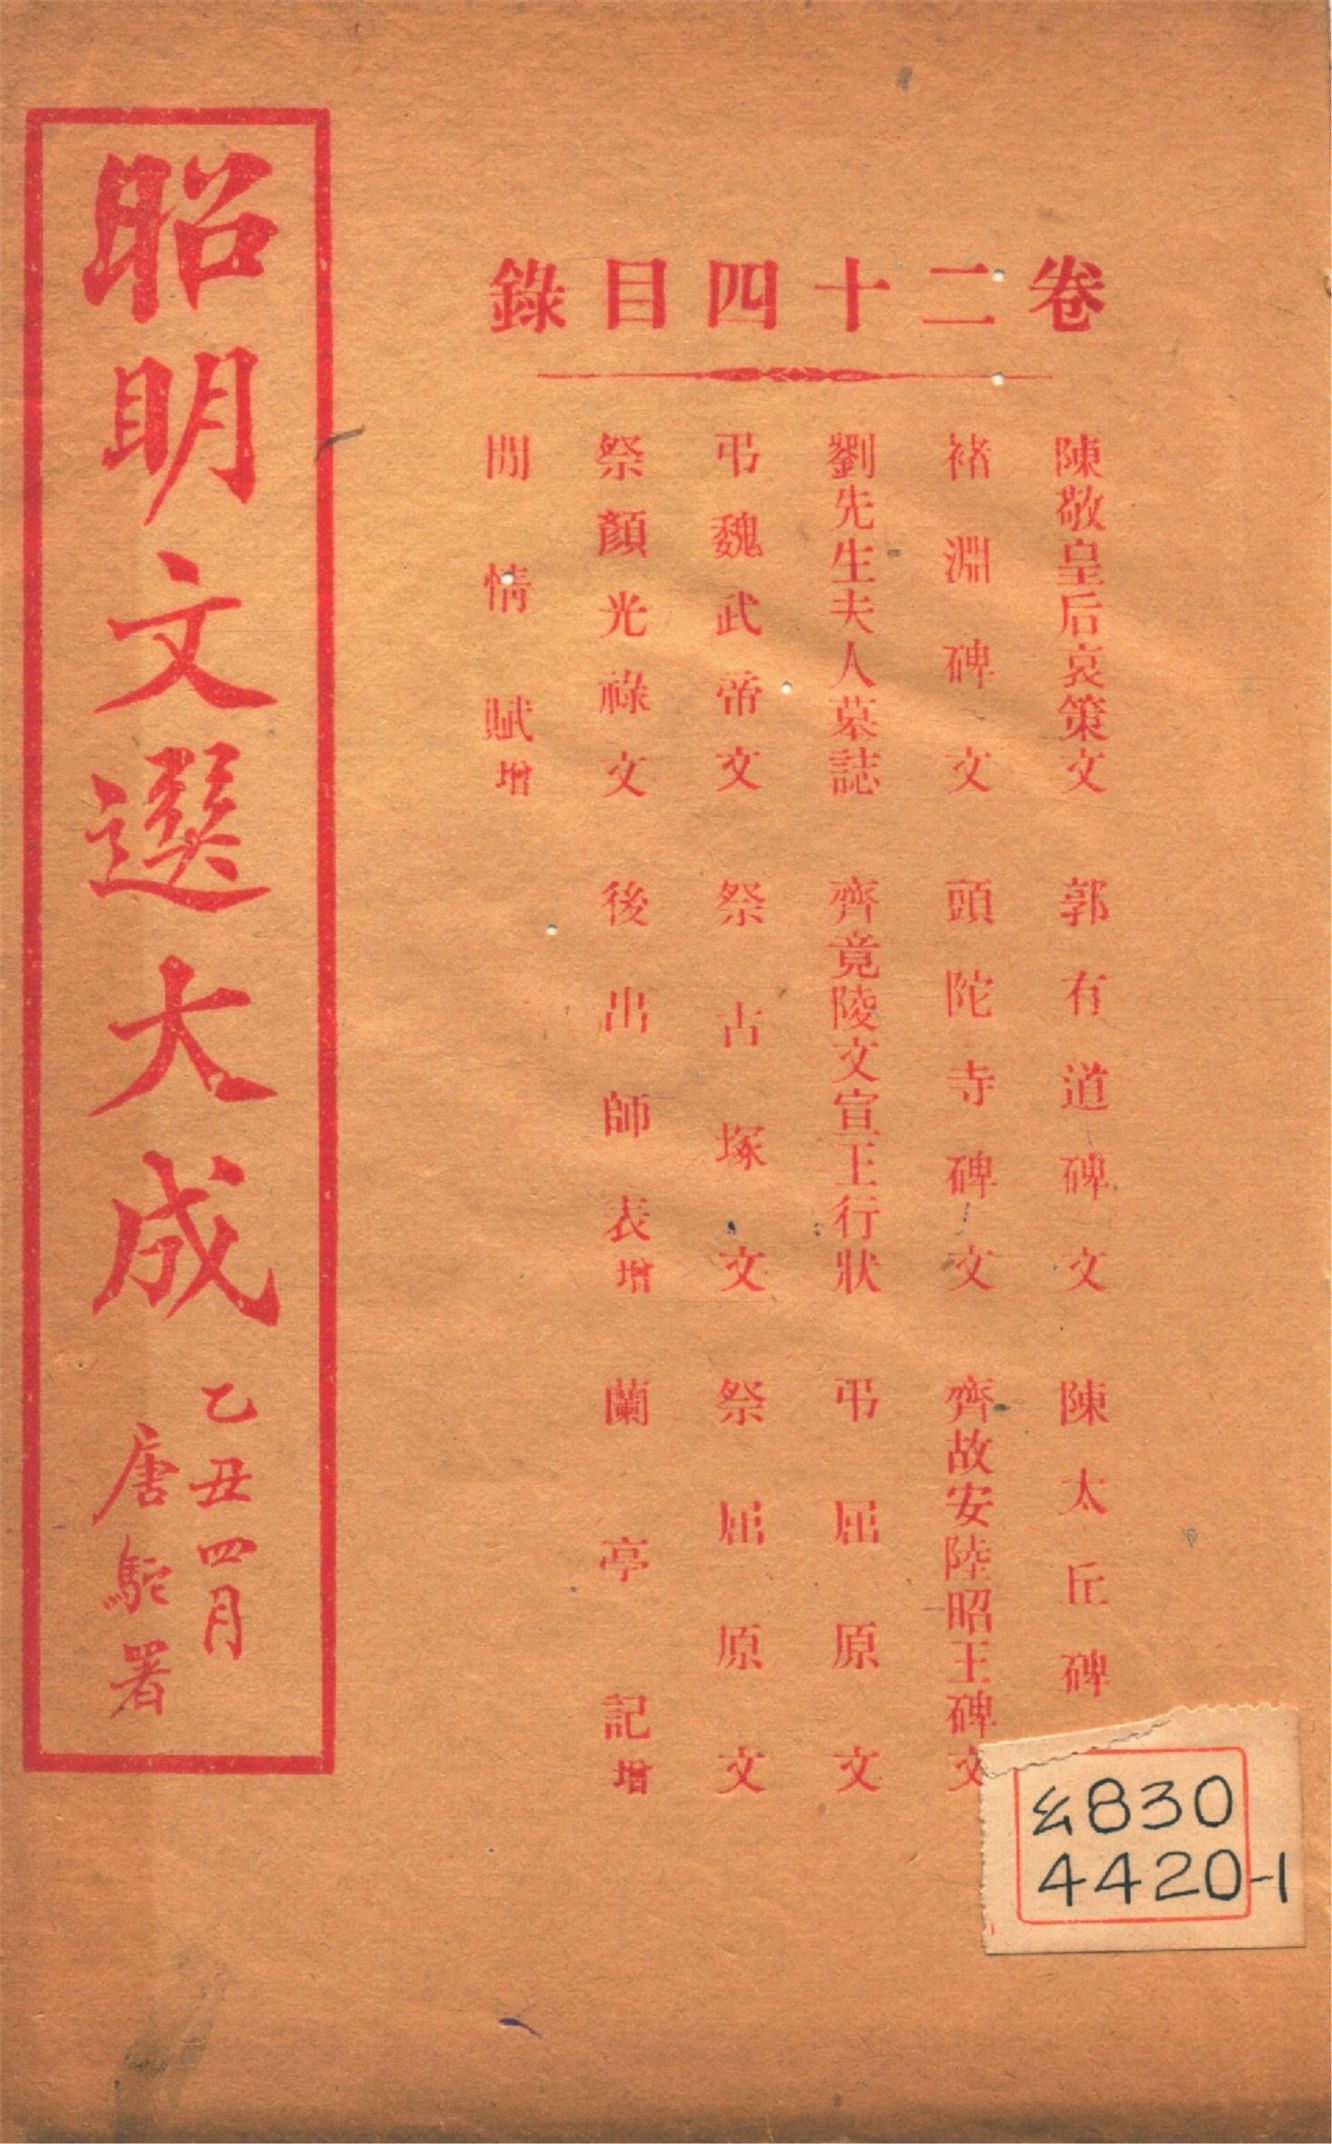 卷二十四目錄
陳敬皇后哀策文 郭有道碑文 陳太丘碑
褚淵碑文 頭陀寺碑文 齊故安陸昭王碑文
劉先生夫人墓誌 齊竟陵文宣王行狀 弔屈原文
弔魏武帝文 祭古塚文 祭屈原文
祭顏光祿文 後出師表增 蘭亭記增
閒情賦增
昭明文選大成
乙丑四月
唐駝署
830
4420-1